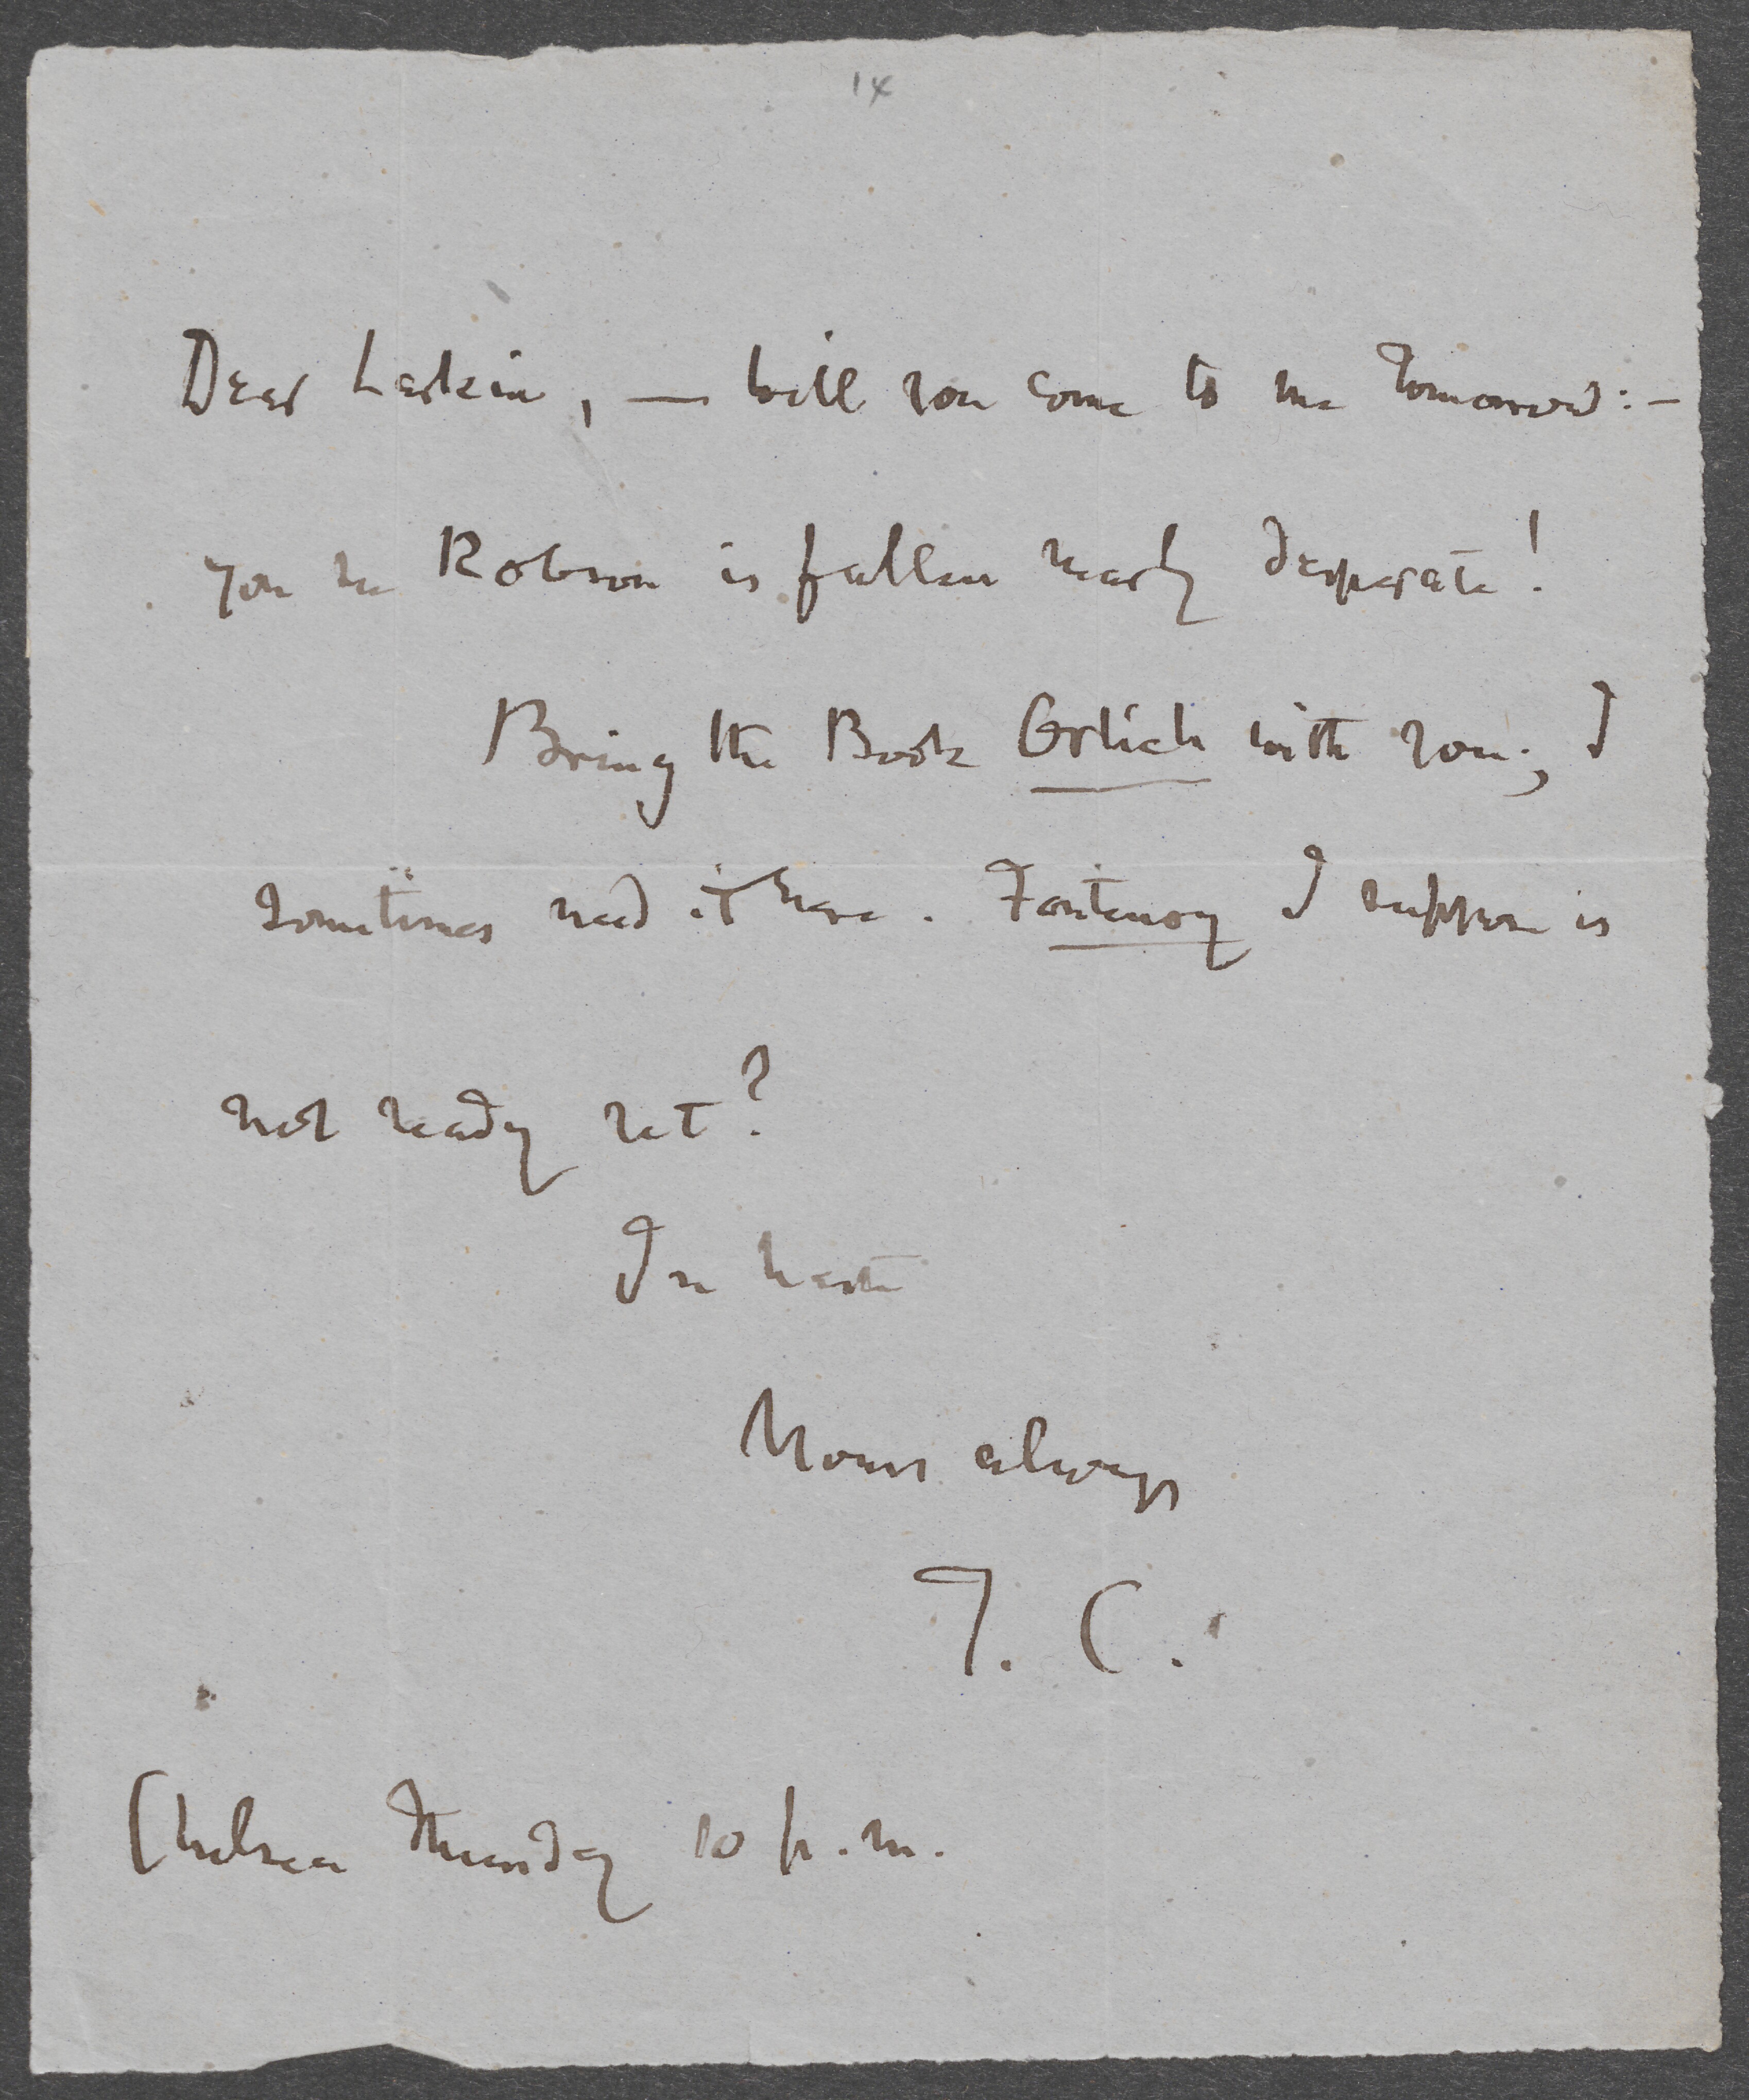 14
Dear Larkin, — will you come to me tomorrow:—
you see Robson is fallen nearly desperate!
Bring the Book Orlich with you; I
sometimes need it here. Fontenoy I suppose is
not ready yet?
In haste
Yours always
T. C.
Chelsea Thursday 10 p.m.